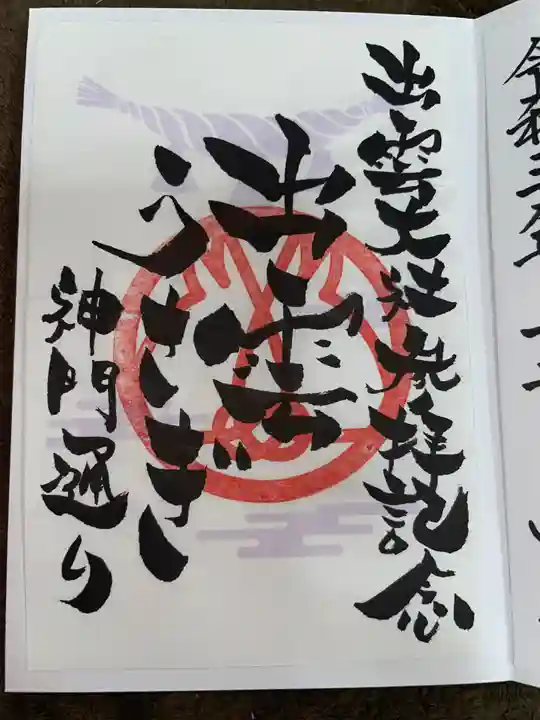 令和三年
出雲大社参拝記念
出雲
うさぎ
神門通り